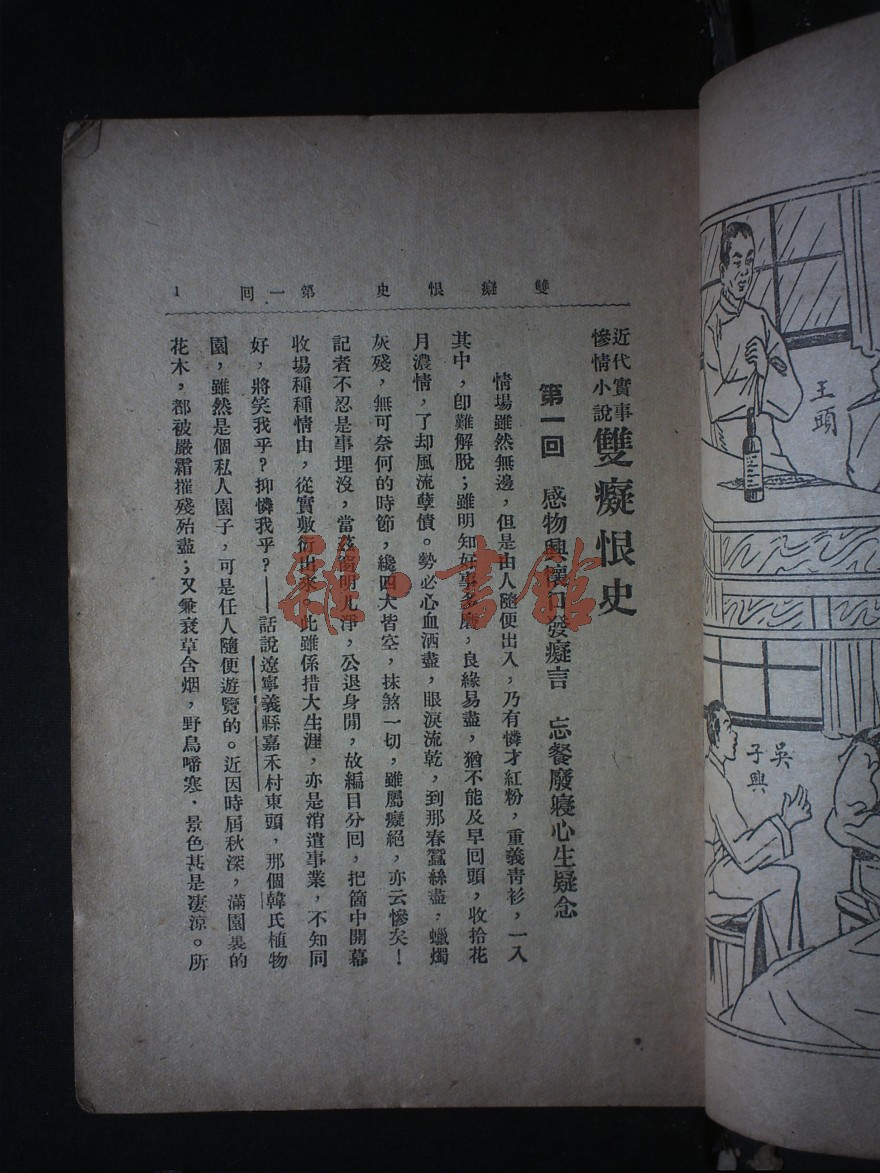 雙癡恨史 第一回 1
近代實事
慘情小說
雙癡恨史
第一回 感物興懷口發癡言 忘餐廢寢心生疑念
情場雖然無邊，但是由人隨便出入，乃有憐才紅粉，重義青衫，一入
其中，卽難解脫；雖明知好事多磨，良緣易盡，猶不能及早回頭，收拾花
月濃情，了却風流孽債。勢必心血洒盡，眼淚流乾，到那春蠶絲盡，蠟燭
灰殘，無可奈何的時節，纔四大皆空，抹煞一切，雖屬癡絕，亦云慘矣！
記者不忍是事埋沒，當茲窗明几淨，公退身閒，故編目分回，把箇中開幕
收場種種情由，從實敷衍出來，此雖係措大生涯，亦是消遣事業，不知同
好，將笑我乎？抑憐我乎？——話說遼寧義縣嘉禾村東頭，那個韓氏植物
園，雖然是個私人園子，可是任人隨便遊覽的。近因時屆秋深，滿園裏的
花木，都被嚴霜摧殘殆盡；又兼衰草含烟，野鳥啼寒，景色甚是凄涼。所
王頭
吳子興
雜·書館